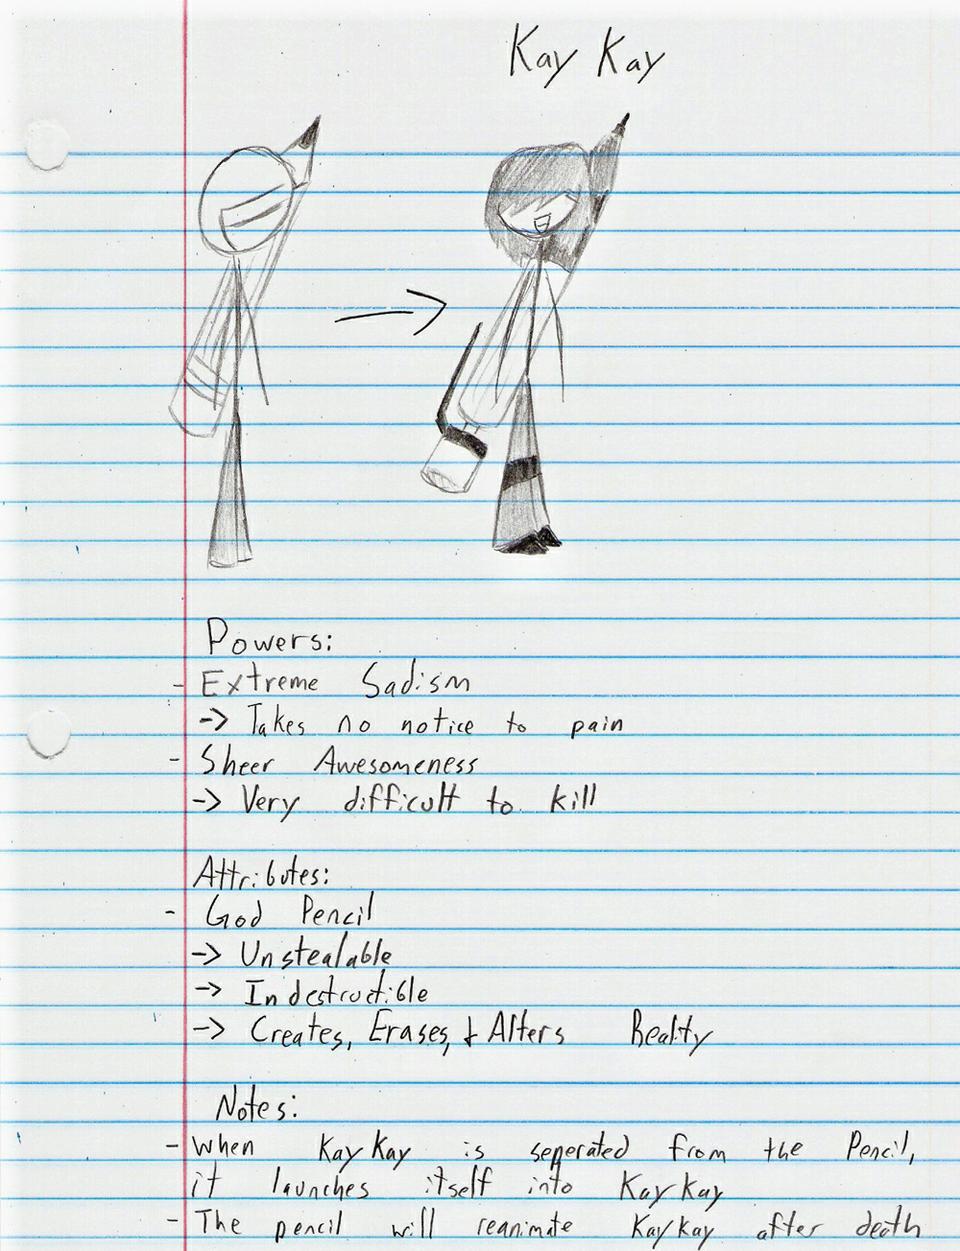 Kay Kay
Powers:
- Extreme Sadism
-> Takes no notice to pain
- Sheer Awesomeness
-> Very difficult to kill
Attributes:
- God Pencil
-> Unstealable
-> Indestructible
-> Creates, Erases, & Alters Reality
Notes:
- When Kay Kay is seperated from the Pencil,
it launches itself into Kay Kay
- The pencil will reanimate Kay Kay after death